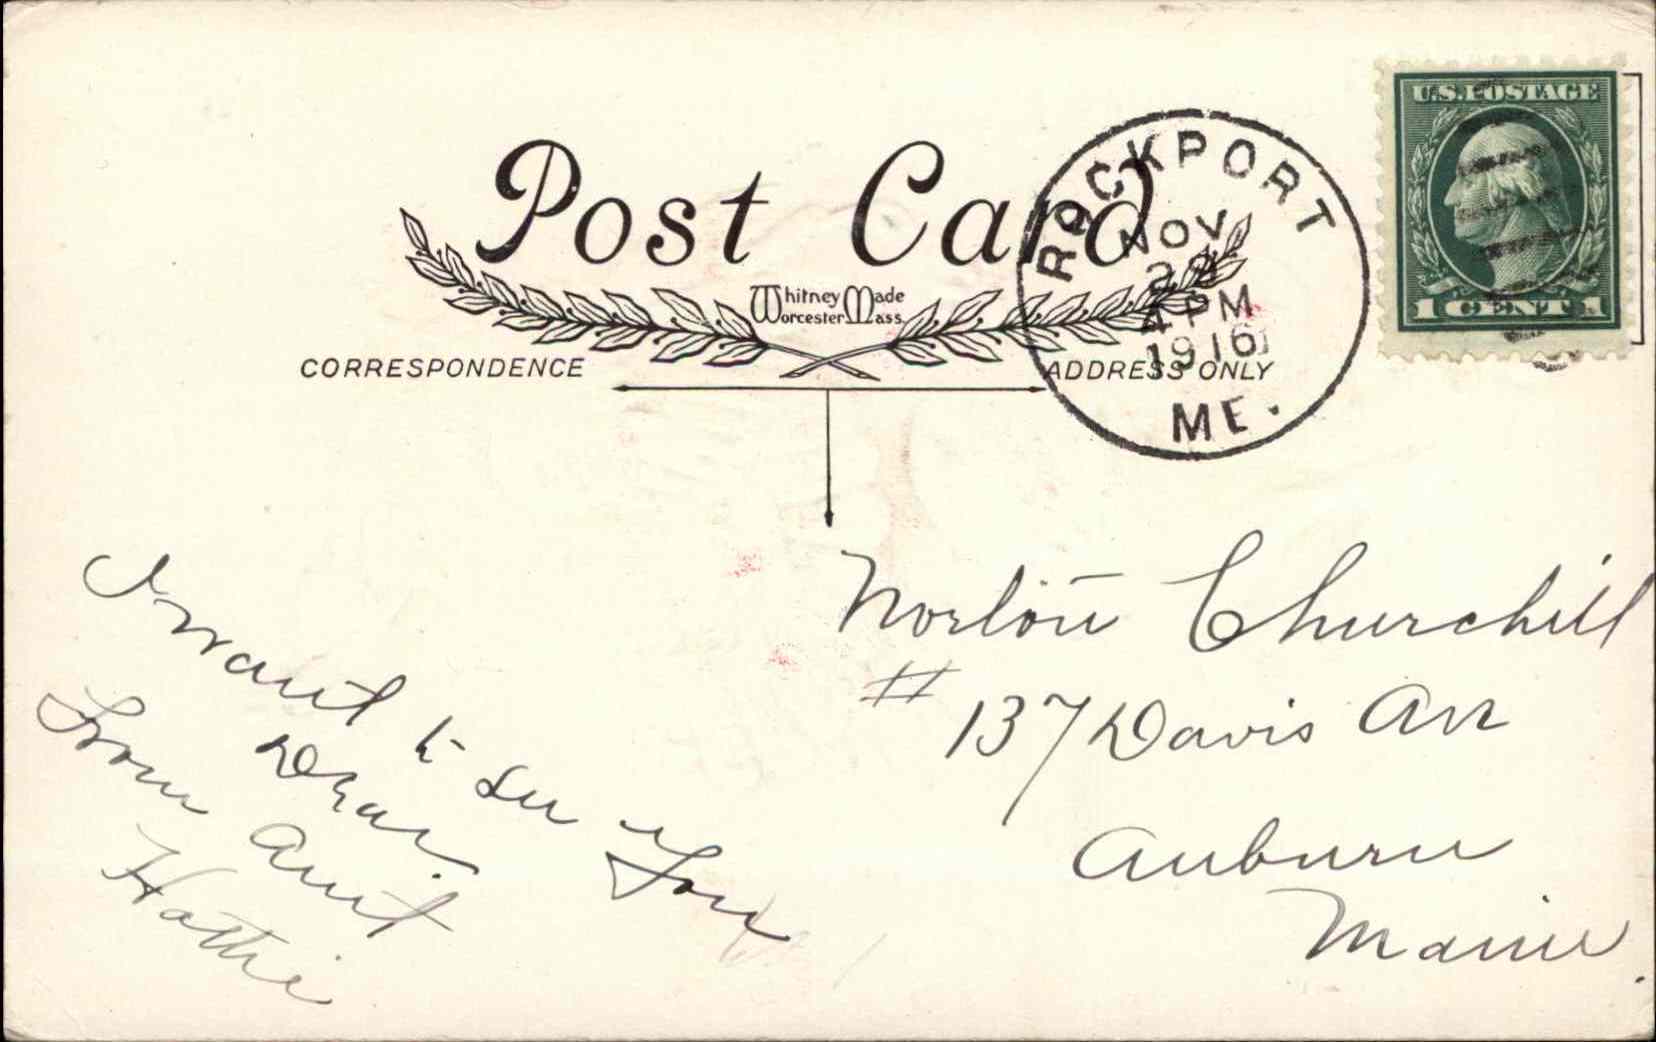 Post Card
Whitney Made
Worcester Mass
CORRESPONDENCE
ADDRESS ONLY
ROCKPORT
NOV
4 PM
1916
ME.
U.S. POSTAGE
1 CENT 1
I want to see you
Dear
From Aunt
Hattie
Norton Churchill
# 137 Davis Ave
Auburn
Maine.